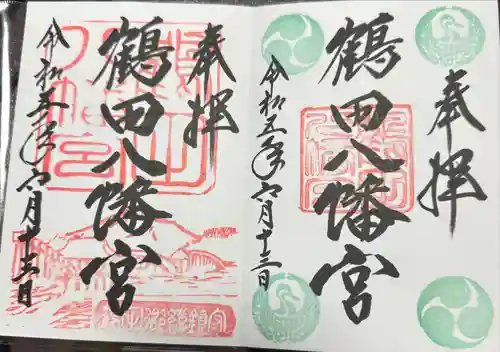 奉拝
鶴田八幡宮
令和五年六月十二日
奉拝
鶴田八幡宮
令和五年六月十三日